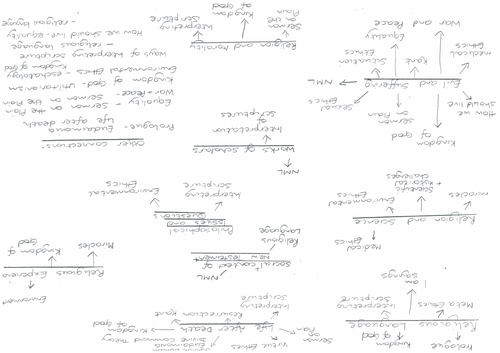 Prologue
Kingdom
of God
Religious Language
Meta Ethics
Interpreting
Scripture
I am
sayings
Virtue Ethics
Eudaimonia
Divine Command Theory
Sermon
on
Plain
Kingdom
of God
Life After Death
Interpreting
Scripture
Resurrection
Kant
NML
Social context of
New Testament
Religious
Language
Environment
Religious Experience
Miracles
Kingdom of
God
Medical
Ethics
Religion and Science
miracles
Environmental
Ethics
Scientific
+ historical
challenges
Philosophical
Issues and
Questions
Interpreting
Scripture
Environmental
Ethics
NML
Works of scholars
Interpretation
of
Scriptures
Kingdom
of God
How we
should live
Sermon
on Plain
Sexual
Ethics
Evil and Suffering
NML
medical
Ethics
Kant
Situation
Ethics
Equality
War and Peace
Religion and Morality
Sermon
on the
Plain
Kingdom
of God
Interpreting
Scripture
other connections:
Prologue - Eudaimonia
Life after death
Equality - Sermon on the Plain
War+Peace - Sermon on the Plain
Kingdom of God - Utilitarianism
Environmental Ethics - eschatology - Kingdom of God
ways of interpreting scripture
- religious language
How we should live - equality
- religious language